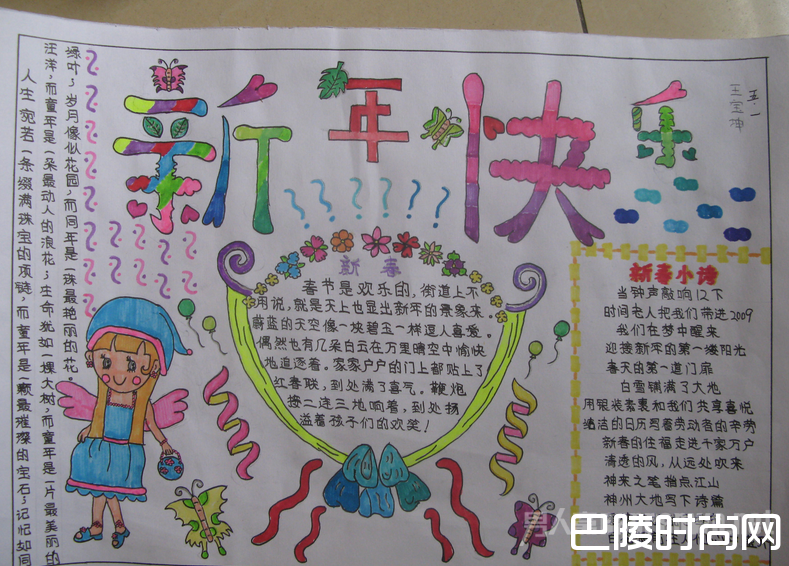 新年快乐
五.一
王宝坤
人生宛若一条缀满珠宝的项链,而童年是一颗最璀璨的宝石;记忆如同
汪洋,而童年是一朵最动人的浪花;生命犹如一棵大树,而童年是一片最美丽的
绿叶;岁月像似花园,而同年是一珠最艳丽的花。
新春
春节是欢乐的,街道上不
用说,就是天上也显出新年的景象来。
蔚蓝的天空像一块碧玉一样逗人喜爱。
偶然也有几朵白云在万里晴空中愉快
地追逐着。家家户户的门上都贴上了
红春联,到处满了喜气。鞭炮
按二连三地响着,到处扬
溢着孩子们的欢笑!
新春小诗
当钟声敲响12下
时间老人把我们带进2009
我们在梦中醒来
迎接新年的第一缕阳光
春天的第一道门扉
白雪铺满了大地
用银装素裹和我们共享喜悦
的日历写着劳动者的辛劳
新春的住福走进千家万户
清透的风,从远处吹来
神来之笔指点江山
神州大地写下诗篇
巴陵时尚网